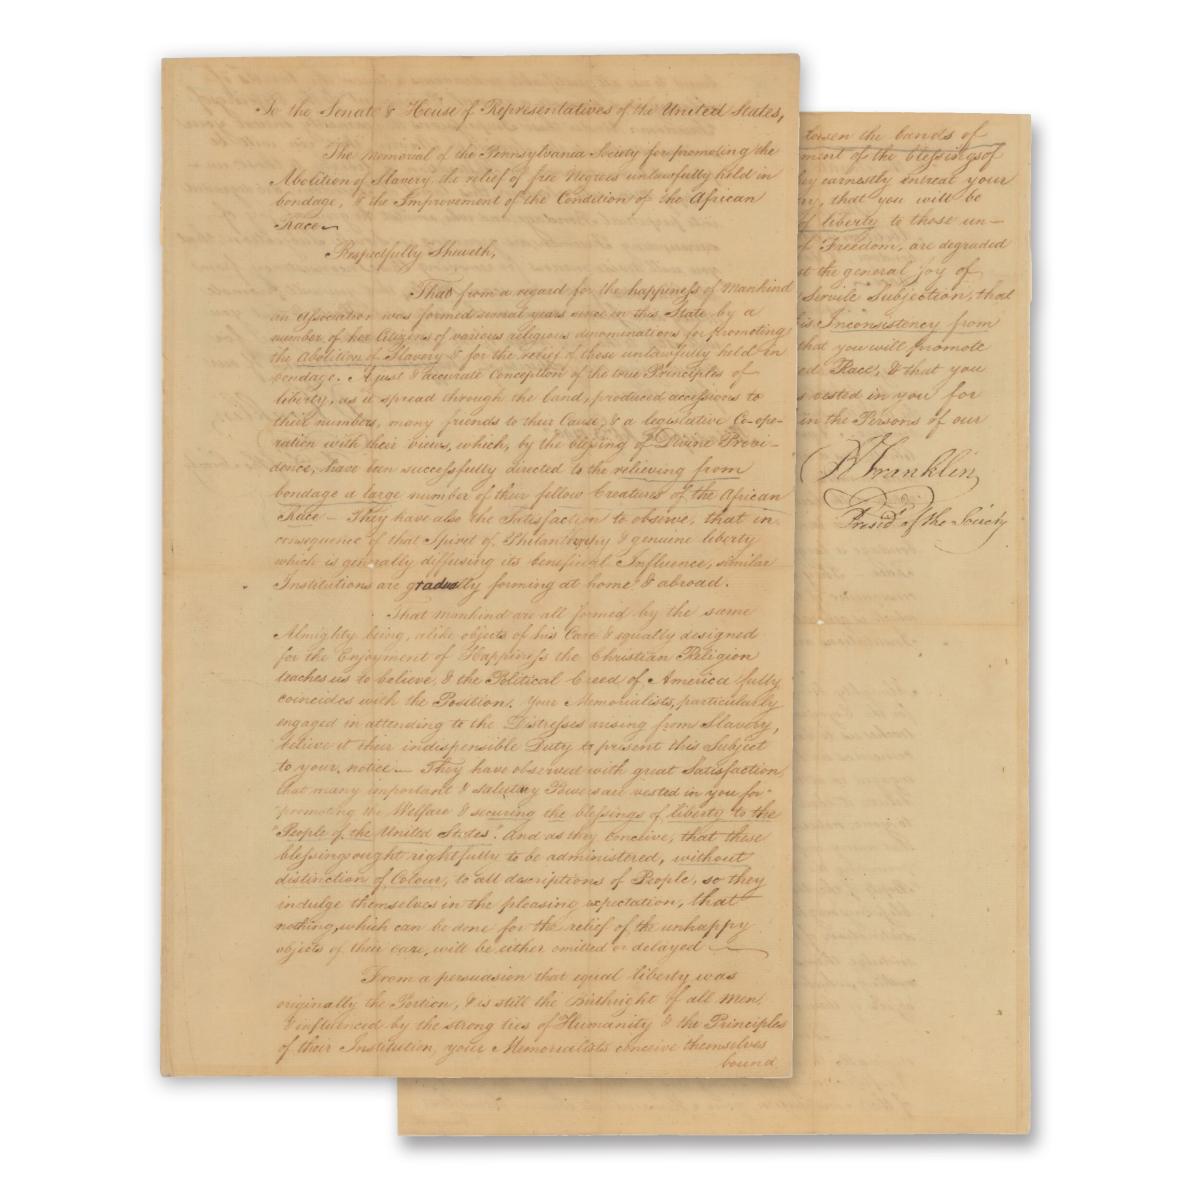 To the Senate & House of Representatives of the United States,
The Memorial of the Pennsylvania Society for promoting the
Abolition of Slavery the relief of free Negroes unlawfully held in
bondage, & the Improvement of the Condition of the African
Race
Respectfully Sheweth,
That from a regard for the happiness of Mankind
an Association was formed several years since in this State by a
number of her Citizens of various religious denominations for promoting
the Abolition of Slavery & for the relief of those unlawfully held in
bondage. A just & accurate Conception of the true Principles of
liberty, as it spread through the land, produced accessions to
their numbers, many friends to their Cause, & a legislative Co-ope-
ration with their views, which, by the blessing of Divine Provi-
dence, have been successfully directed to the relieving from
bondage a large number of their fellow Creatures of the African
Race – They have also the Satisfaction to observe, that in
consequence of that Spirit of Philanthropy & genuine liberty
which is generally diffusing its beneficial Influence, similar
Institutions are gradually forming at home & abroad.
That mankind are all formed by the same
Almighty being, alike objects of his Care & equally designed
for the Enjoyment of Happiness the Christian Religion
teaches us to believe & the Political Creed of America fully
coincides with the Position. Your Memorialists, particularly
engaged in attending to the Distresses arising from Slavery,
believe it their indispensible Duty to present this Subject
to your notice – They have observed with great Satisfaction
that many important & salutary Powers are vested in you for
"promoting the Welfare & securing the blessings of liberty to the
"People of the United States". And as they conceive, that these
blessings ought rightfully to be administered, without
distinction of Colour, to all descriptions of People, so they
indulge themselves in the pleasing expectation, that
nothing, which can be done for the relief of the unhappy
objects of their care, will be either omitted or delayed –
From a persuasion that equal liberty was
originally the Portion, & is still the Birthright of all Men,
& influenced by the strong ties of Humanity & the Principles
of their Institution, your Memorialists conceive themselves
bound
loosen the bands of
ment of the blessings of
earnestly intreat your
that you will be
of liberty to those un–
Freedom, are degraded
the general Joy of
Servile Subjection, that
Inconsistency from
that you will promote
Race, & that you
vested in you for
in the Persons of our
B Franklin
Presidt. of the Society